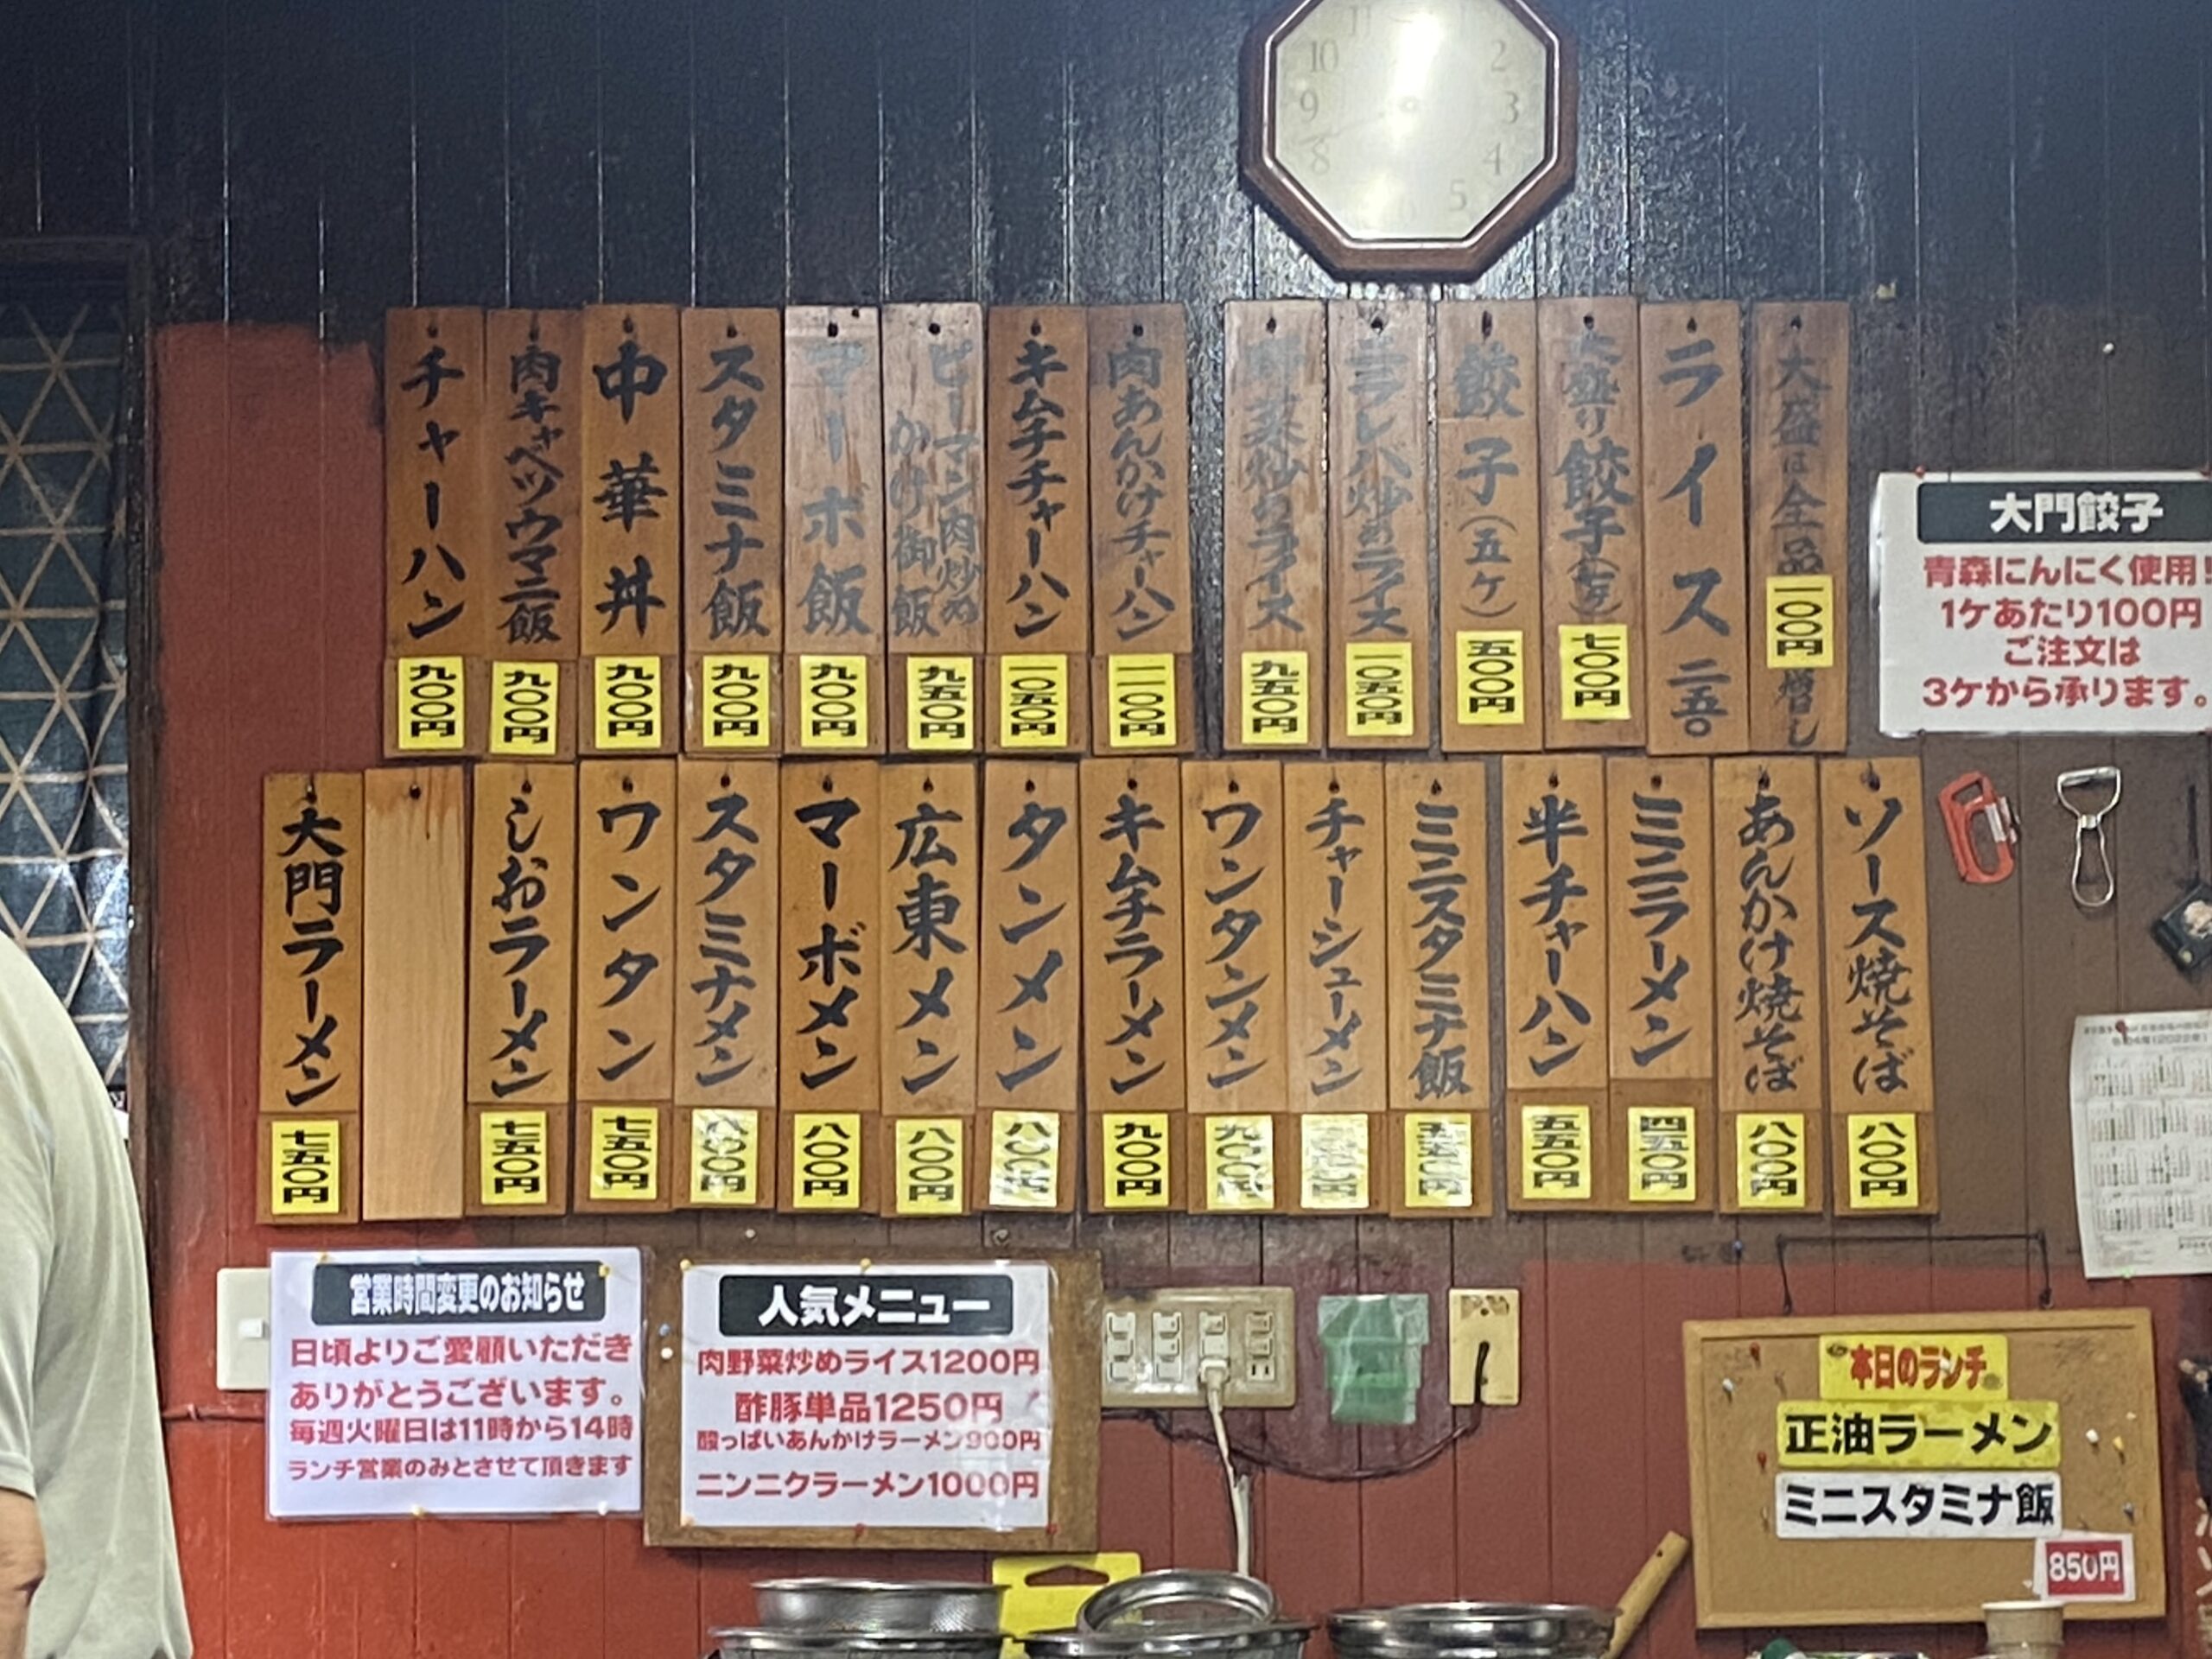 チャーハン 九〇〇円
肉キャベツウマニ飯 九〇〇円
中華丼 九〇〇円
スタミナ飯 九〇〇円
マーボ飯 九〇〇円
ピーマン肉炒め
かけ御飯 九五〇円
キムチチャーハン 一〇五〇円
肉あんかけチャーハン 一一〇〇円
野菜炒めライス 九五〇円
ニラレバ炒めライス 一〇五〇円
餃子(五ケ) 五〇〇円
大盛り餃子(七ケ) 七〇〇円
ライス 二五〇
大盛は全品一〇〇円増し
大門餃子
青森にんにく使用!
1ケあたり100円
ご注文は
3ケから承ります。
大門ラーメン 七五〇円
しおラーメン 七五〇円
ワンタン 七五〇円
スタミナメン 八〇〇円
マーボメン 八〇〇円
広東メン 八〇〇円
タンメン 八〇〇円
キムチラーメン 九〇〇円
ワンタンメン 九〇〇円
チャーシューメン
ミニスタミナ飯
半チャーハン 五五〇円
ミニラーメン 四五〇円
あんかけ焼そば 八〇〇円
ソース焼そば 八〇〇円
営業時間変更のお知らせ
日頃よりご愛顧いただき
ありがとうございます。
毎週火曜日は11時から14時
ランチ営業のみとさせて頂きます
人気メニュー
肉野菜炒めライス1200円
酢豚単品1250円
酸っぱいあんかけラーメン900円
ニンニクラーメン1000円
本日のランチ
正油ラーメン
ミニスタミナ飯
850円
10
2
9
3
8
4
5